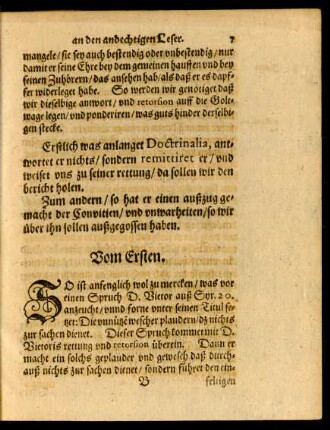 an den andechtigen Leser. 7
mangele/sie sey auch bestendig oder unbestendig/nur
damit er seine Ehre bey dem gemeinen hauffen vnd bey
seinen Zuhörern/das ansehen hab/als daß er es dapf-
fer widerleget habe. So werden wir genötiget daß
wir dieselbige antwort/vnd retorsion auff die Golt
wage legen/vnd ponderiren/was guts hinder derselbi-
gen stecke.
Erstlich was anlanget Doctrinalia, ant-
wortet er nichts/sondern remittiret er/vnd
weiset vns zu seiner rettung/da sollen wir den
bericht holen.
Zum andern/so hat er einen außzüg ge-
macht der Convitien/vnd vnwarheiten/so wir
über ihn sollen außgegossen haben.
Vom Ersten.
SO ist anfenglich wol zu mercken/was vor
einen Spruch D. Vietor auß Syr. 20.
anzeucht/vnnd forne vnter seinen Titul se-
tzet: Die vnnütz wescher plaudern/dz nichts
zur sachen dienet. Dieser Spruch kommet mit D.
Vietoris rettung vnd retorsion überein. Dann er
macht ein solchs geplauder vnd gewesch daß durch-
auß nichts zur sachen dienet/sondern führet den ein-
B feltigen